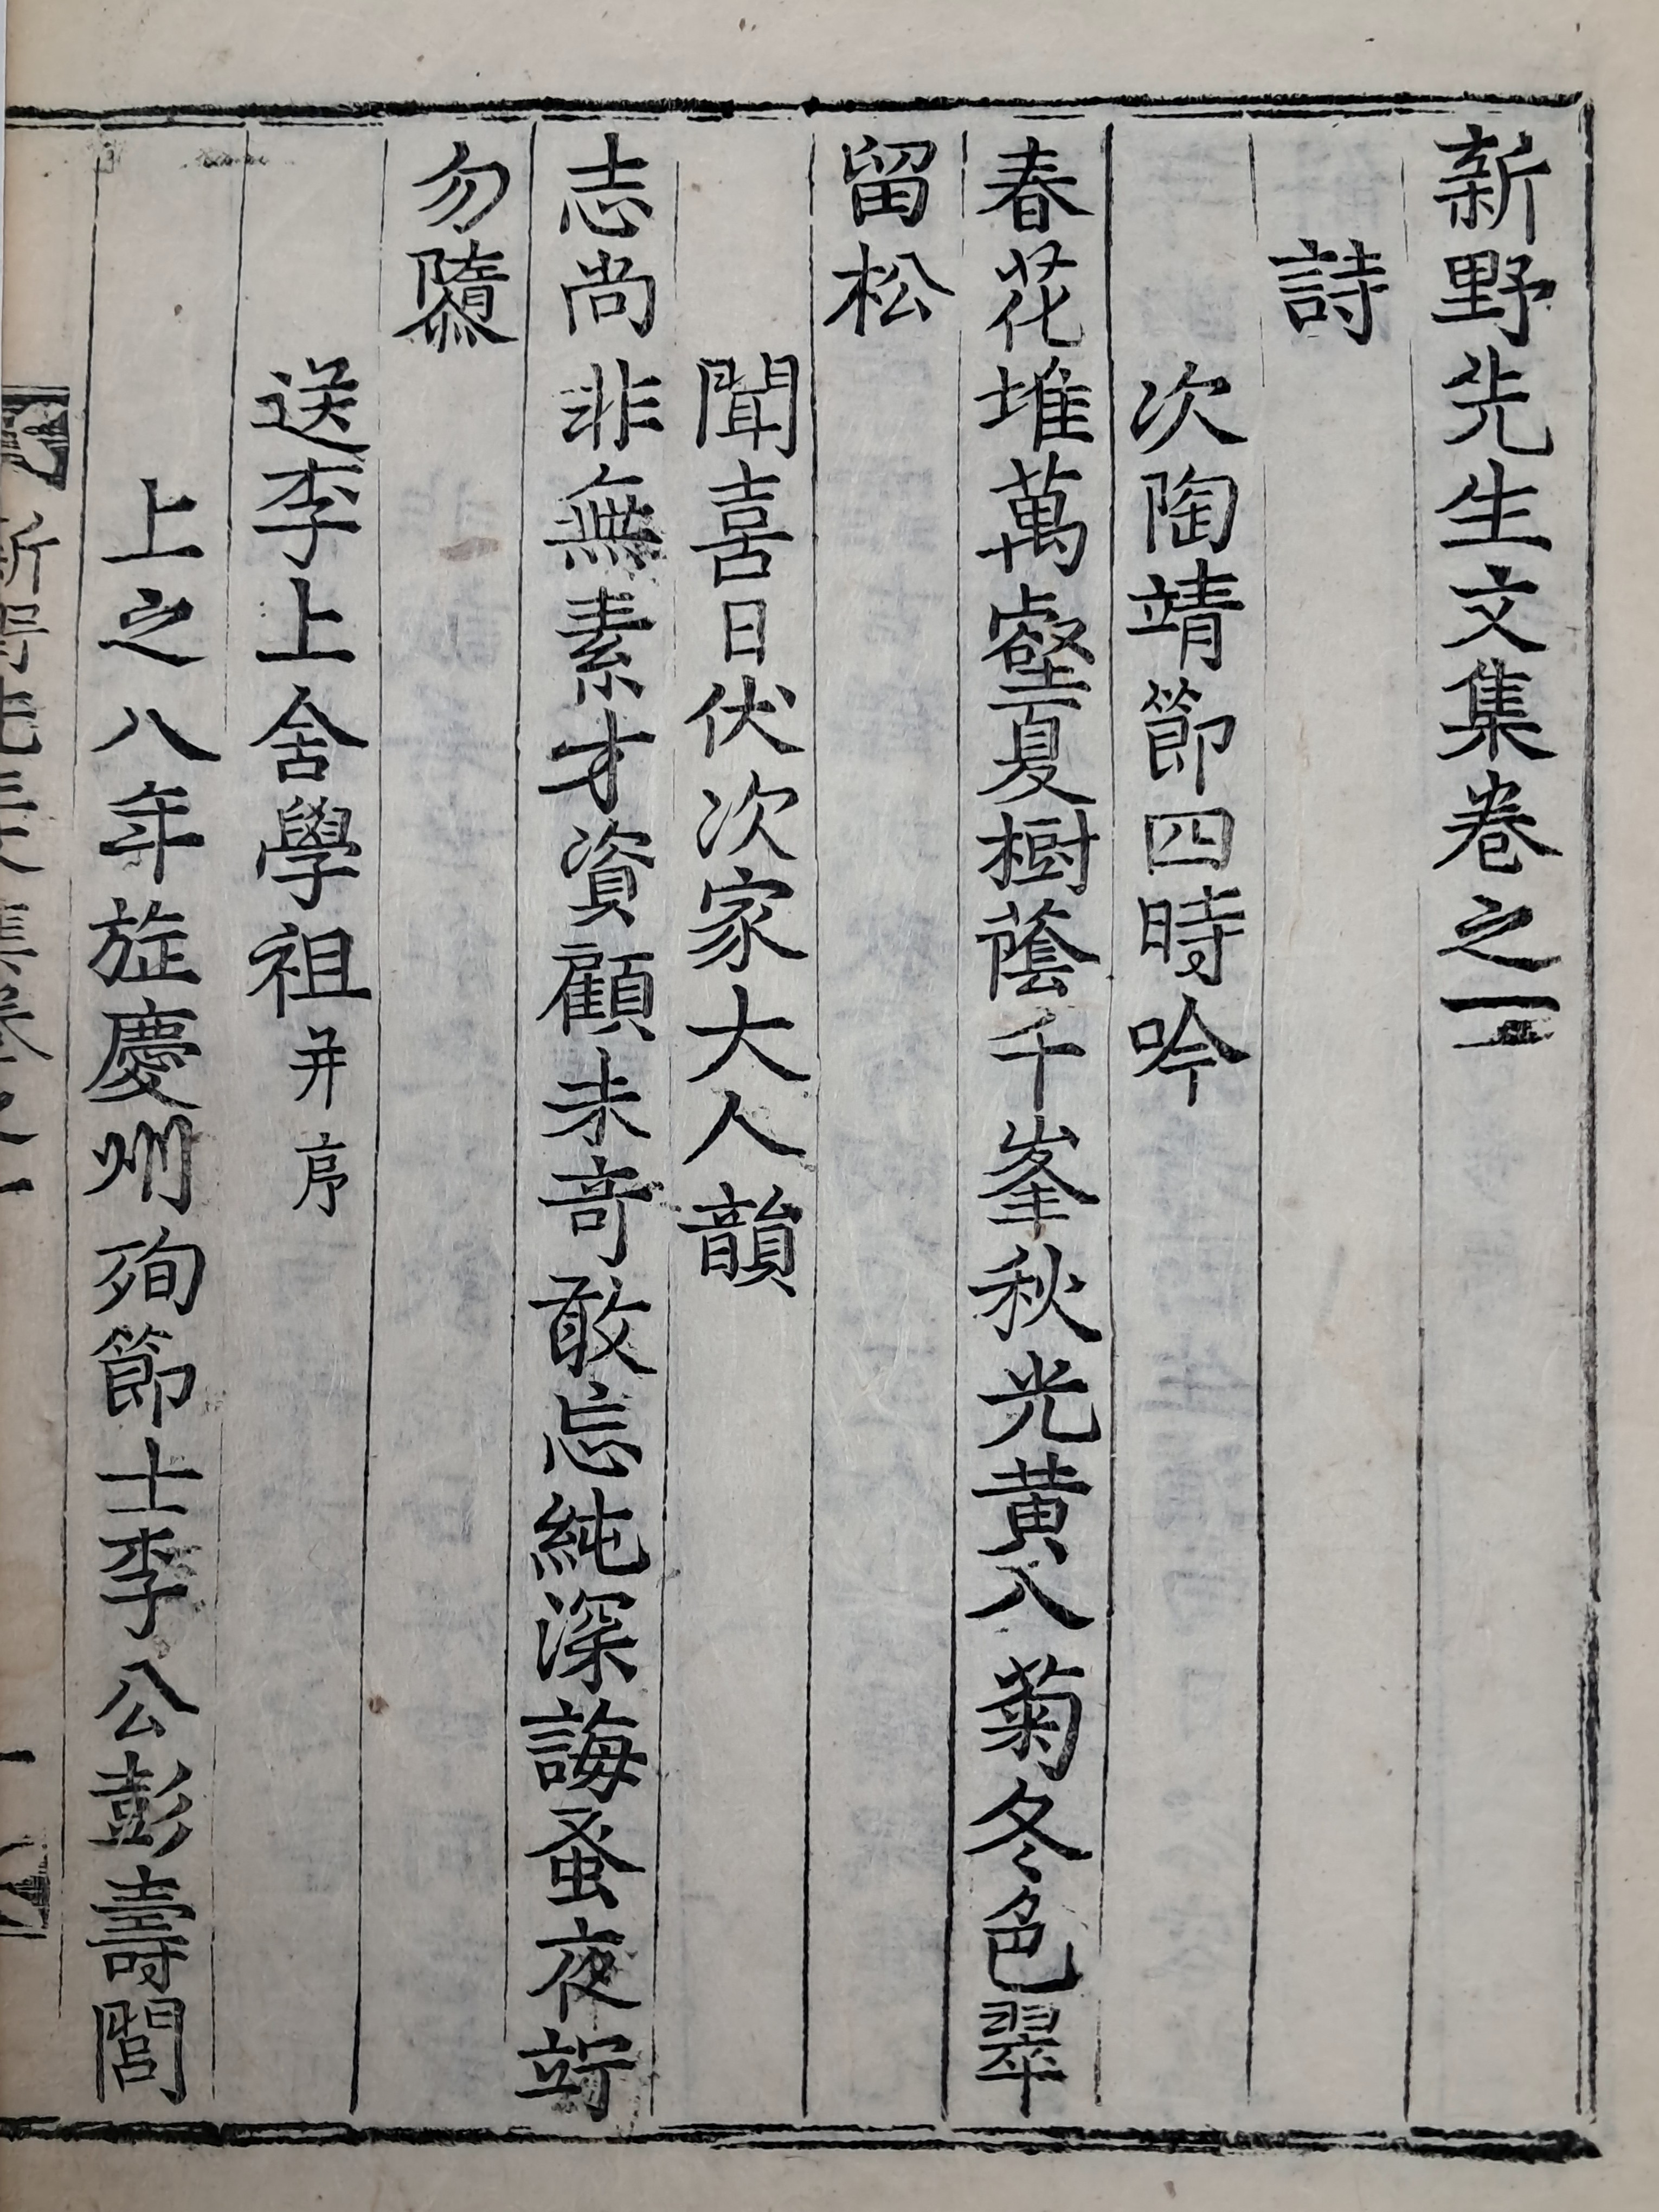 新野先生文集卷之一
詩
次陶靖節四時吟
春花堆萬壑夏樹蔭千峯秋光黃入菊冬色翠
留松
聞喜日伏次家大人韻
志尚非無素才資顧未奇敢忘純深誨蚤夜竚
勿隳
送李上舍學祖并序
上之八年旌慶州殉節士李公彭壽閭
新野先生文集卷之一
一